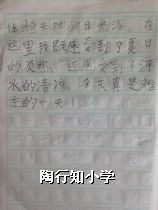 体验天然的日光浴。在
这里我既感受到了夏日
的炎热，还感受到了海
水的清凉。今天真是难
忘的一天！
陶行知小学